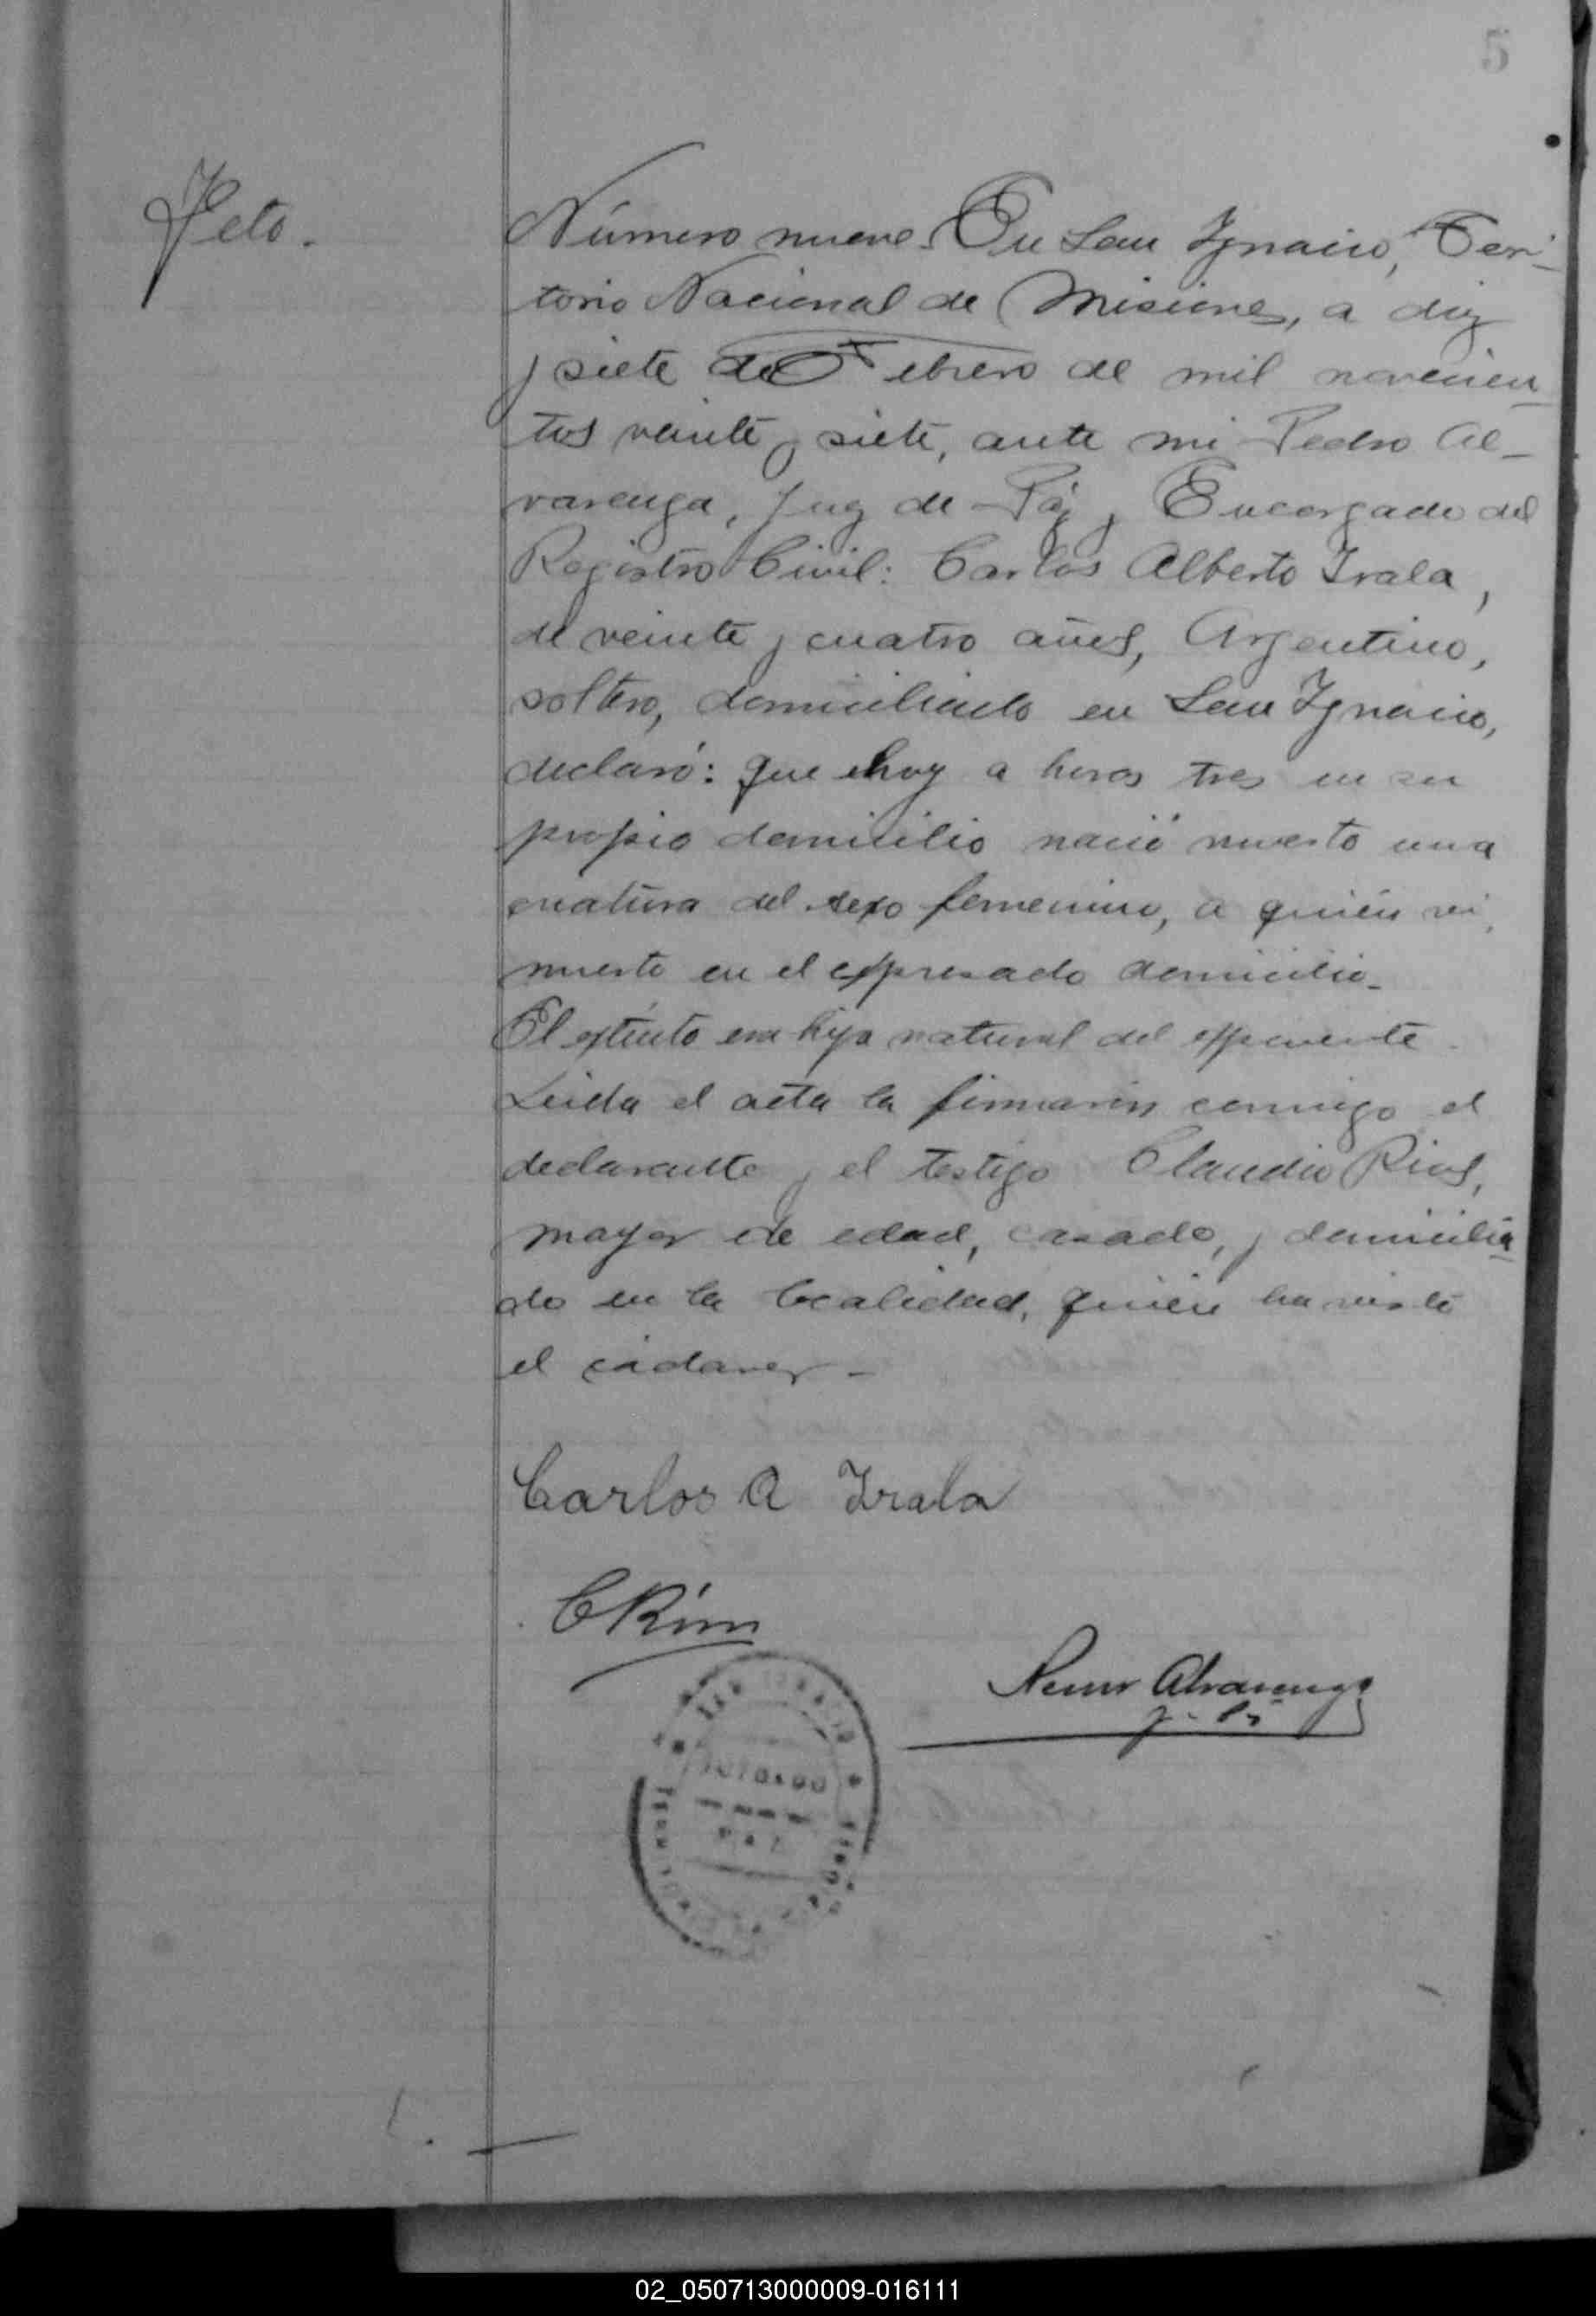 5
Feto.
Número nueve. En San Ignacio, Terri-
torio Nacional de Misiones, a diez
y siete de Febrero de mil novecien
tos veinte y siete, ante mi Pedro Al-
varenga, Juez de Páz y Encargado del
Registro Civil: Carlos Alberto Irala,
de veinte y cuatro años, Argentino,
soltero, domiciliado en San Ignacio,
declaró: que hoy a horas tres en su
propio domicilio nació muerto una
creatura del sexo femenino, a quién vi
muerto en el expresado domicilio.
El extinto era hija natural del exponente.
Leida el acta la firmaron conmigo el
declarante y el testigo Claudio Rios,
mayor de edad, casado, y domicilia
do en la localidad, quién ha visto
el cádaver-
Carlos A Irala
C Ríos
Alvarenga
J. Pz
SAN IGNACIO
JUZGADO
PAZ
02_050713000009-016111